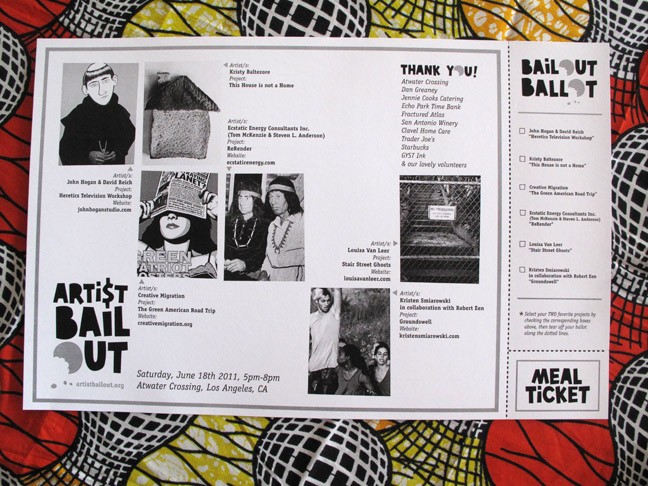 Artist/s:
Kristy Baltezore
Project:
This House is not a Home
Artist/s:
Ecstatic Energy Consultants Inc.
(Tom McKenzie & Steven L. Anderson)
Project:
ReRender
Website:
ecstaticenergy.com
Artist/s:
John Hogan & David Reich
Project:
Heretics Television Workshop
Website:
johnhoganstudio.com
Artist/s:
Louisa Van Leer
Project:
Stair Street Ghosts
Website:
louisavanleer.com
Artist/s:
Creative Migration
Project:
The Green American Road Trip
Website:
creativemigration.org
Artist/s:
Kristen Smiarowski
in collaboration with Robert Een
Project:
Groundswell
Website:
kristensmiarowski.com
ARTI$T
BAIL
OUT
artistbailout.org
Saturday, June 18th 2011, 5pm-8pm
Atwater Crossing, Los Angeles, CA
THANK YOU!
Atwater Crossing
Dan Greaney
Jennie Cooks Catering
Echo Park Time Bank
Fractured Atlas
San Antonio Winery
Clavel Home Care
Trader Joe's
Starbucks
GYST Ink
& our lovely volunteers
BAILOUT
BALLOT
John Hogan & David Reich
"Heretics Television Workshop"
Kristy Baltezore
"This House is not a Home"
Creative Migration
"The Green American Road Trip"
Ecstatic Energy Consultants Inc.
(Tom McKenzie & Steven L. Anderson)
"ReRender"
Louisa Van Leer
"Stair Street Ghosts"
Kristen Smiarowski
in collaboration with Robert Een
"Groundswell"
* Select your TWO favorite projects by
checking the corresponding boxes
above, then tear off your ballot
along the dotted lines.
MEAL
TICKET